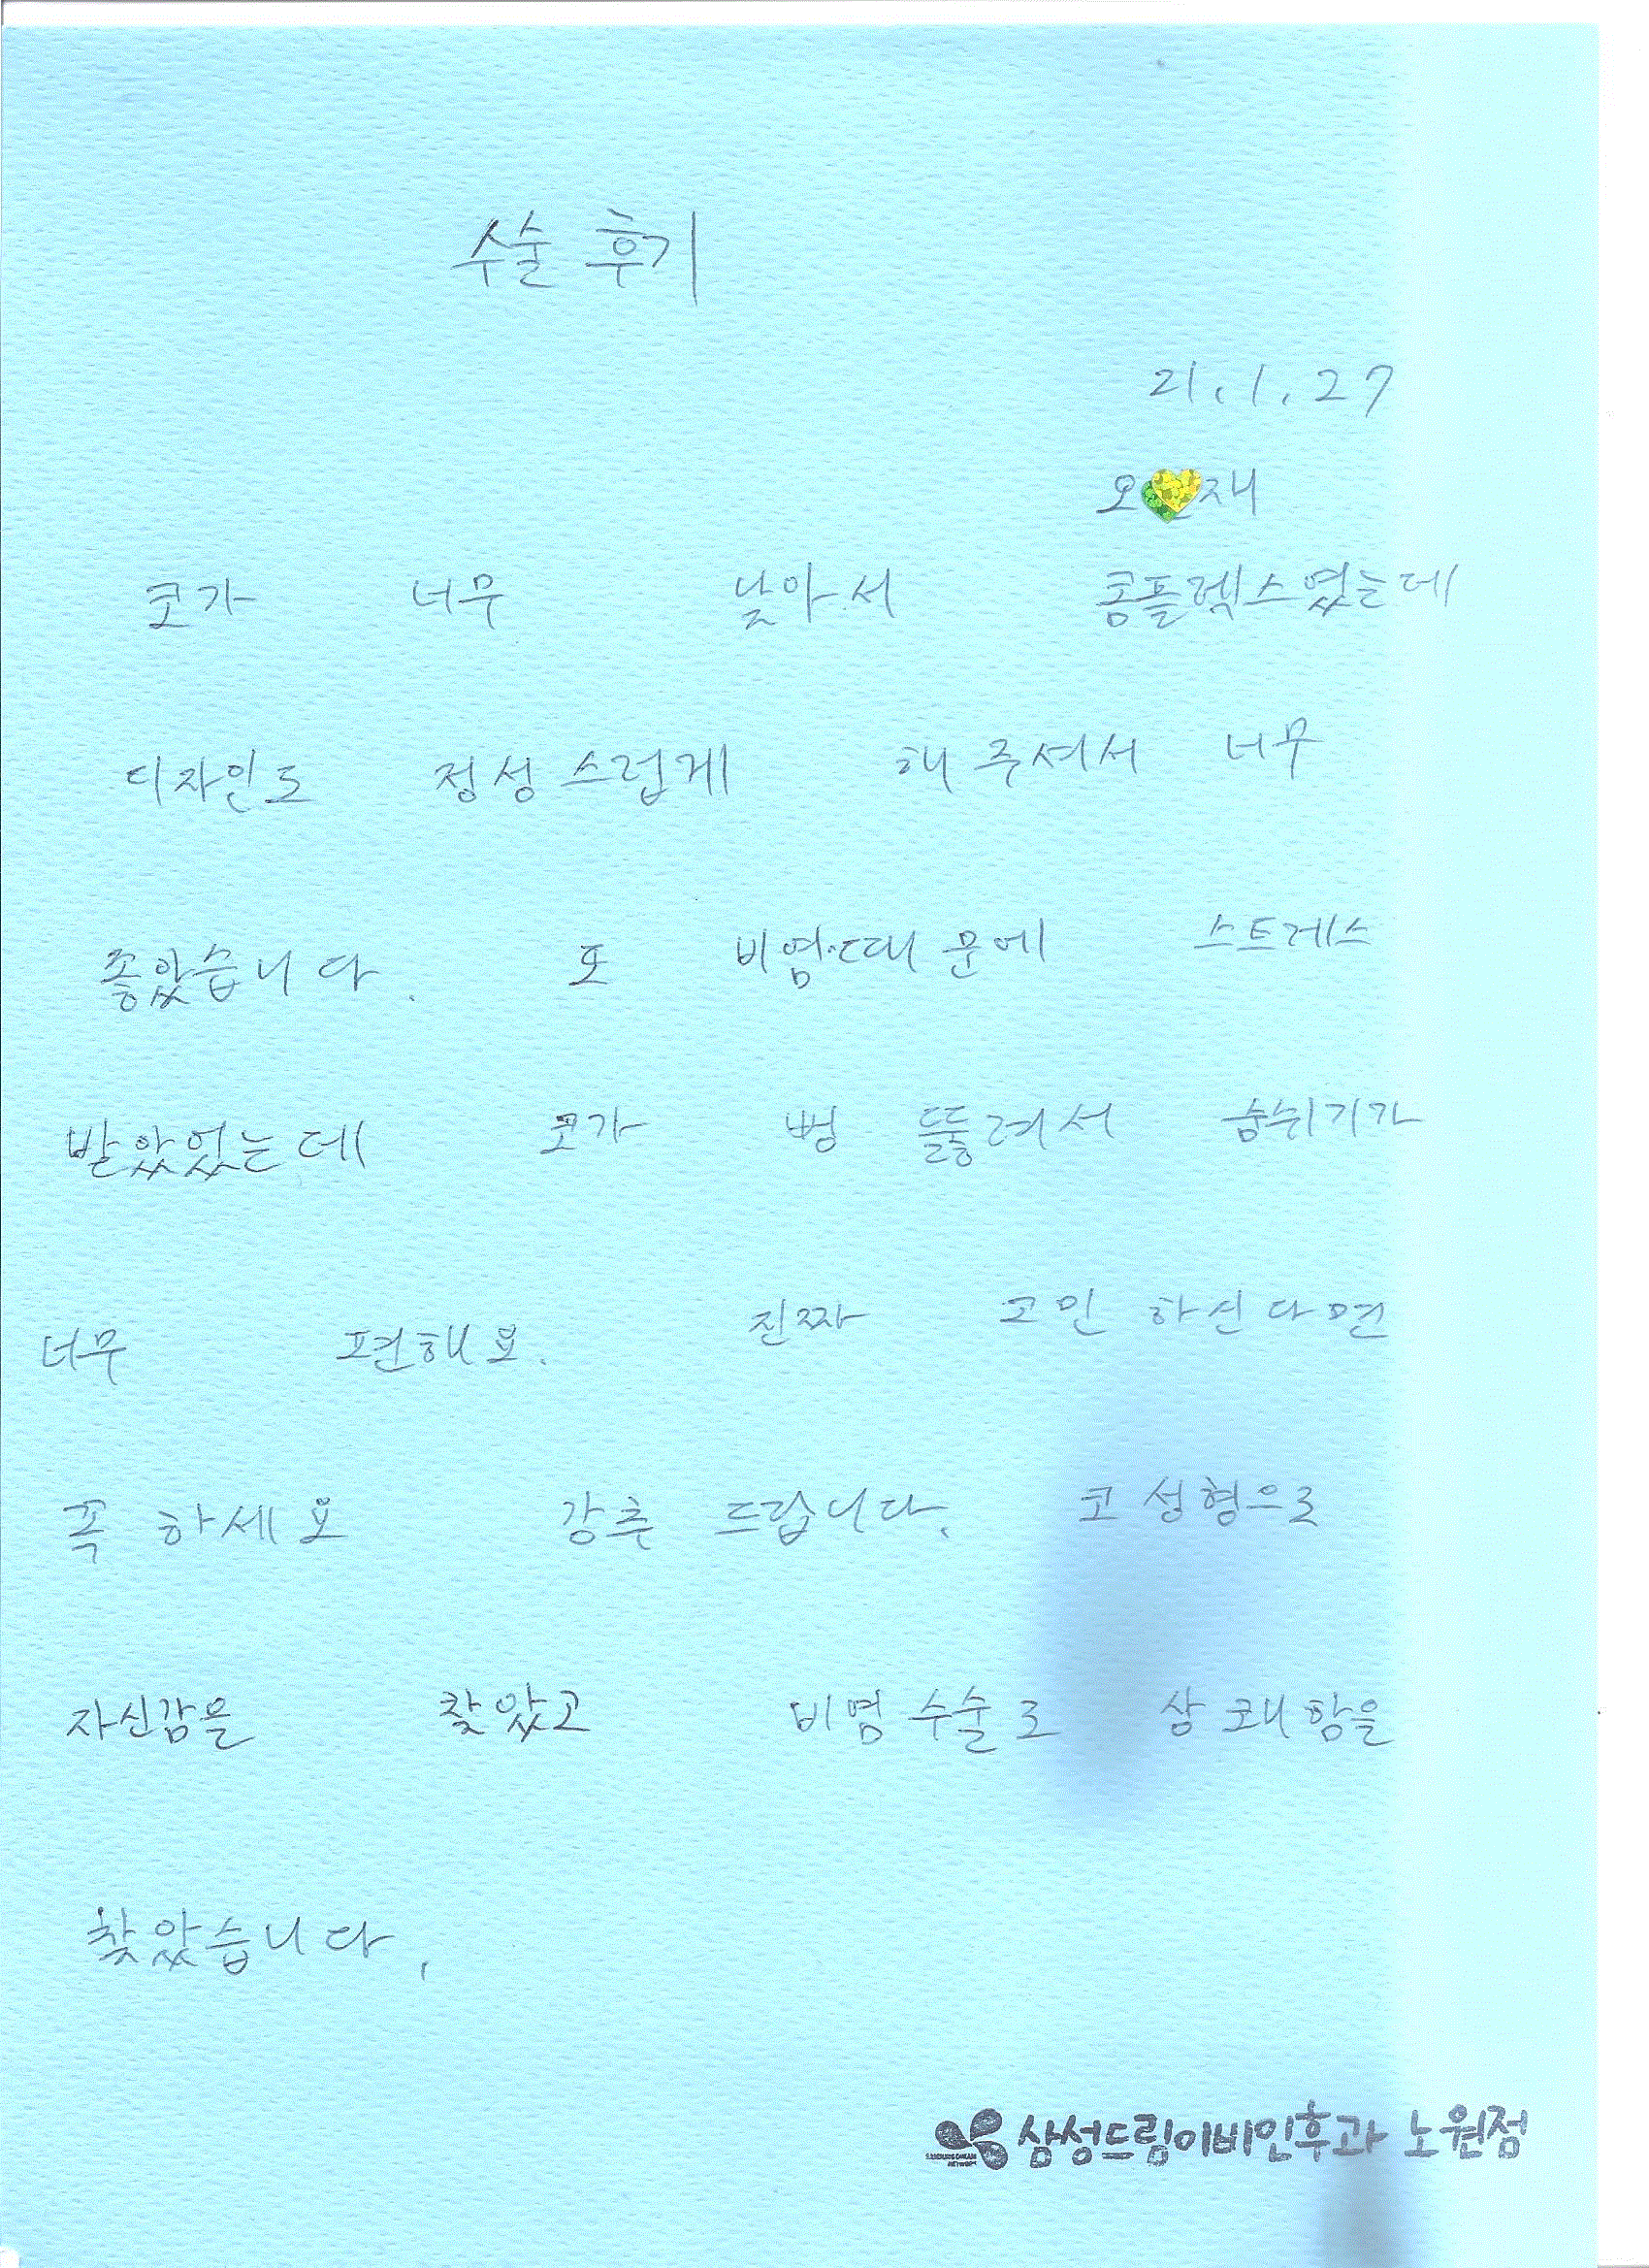 수술 후기
21.1.27
오 재
코가 너무 낮아서 콤플렉스였는데
디자인도 정성스럽게 해주셔서 너무
좋았습니다. 또 비염때문에 스트레스
받았었는데 코가 뻥 뚫려서 숨쉬기가
너무 편해요. 진짜 고민하신다면
꼭 하세요 강추 드립니다. 코 성형으로
자신감을 찾았고 비염 수술로 상쾌함을
찾았습니다.
삼성드림이비인후과 노원점